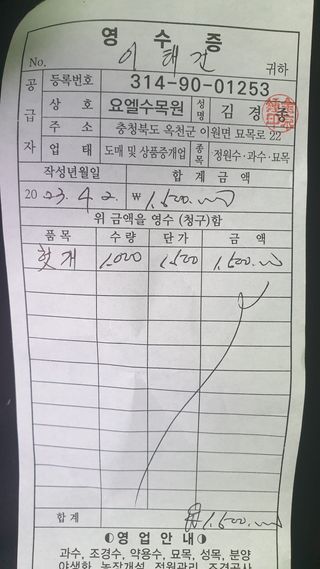 영수증
No. 이태건 귀하
공급자
등록번호 314-90-01253
상호 요엘수목원 성명 김경동
주소 충청북도 옥천군 이원면 묘목로 22
업태 도매 및 상품중개업 종목 정원수·과수·묘목
작성년월일 합계금액
2023.4.2. ₩ 1,500.000
위 금액을 영수(청구)함
품목 수량 단가 금액
헛개 1,000 1,500 1,500.000
합계 ₩1,500.000
◐영업안내◑
과수, 조경수, 약용수, 묘목, 성목, 분양
야생화, 농장개설, 정원관리, 조경공사